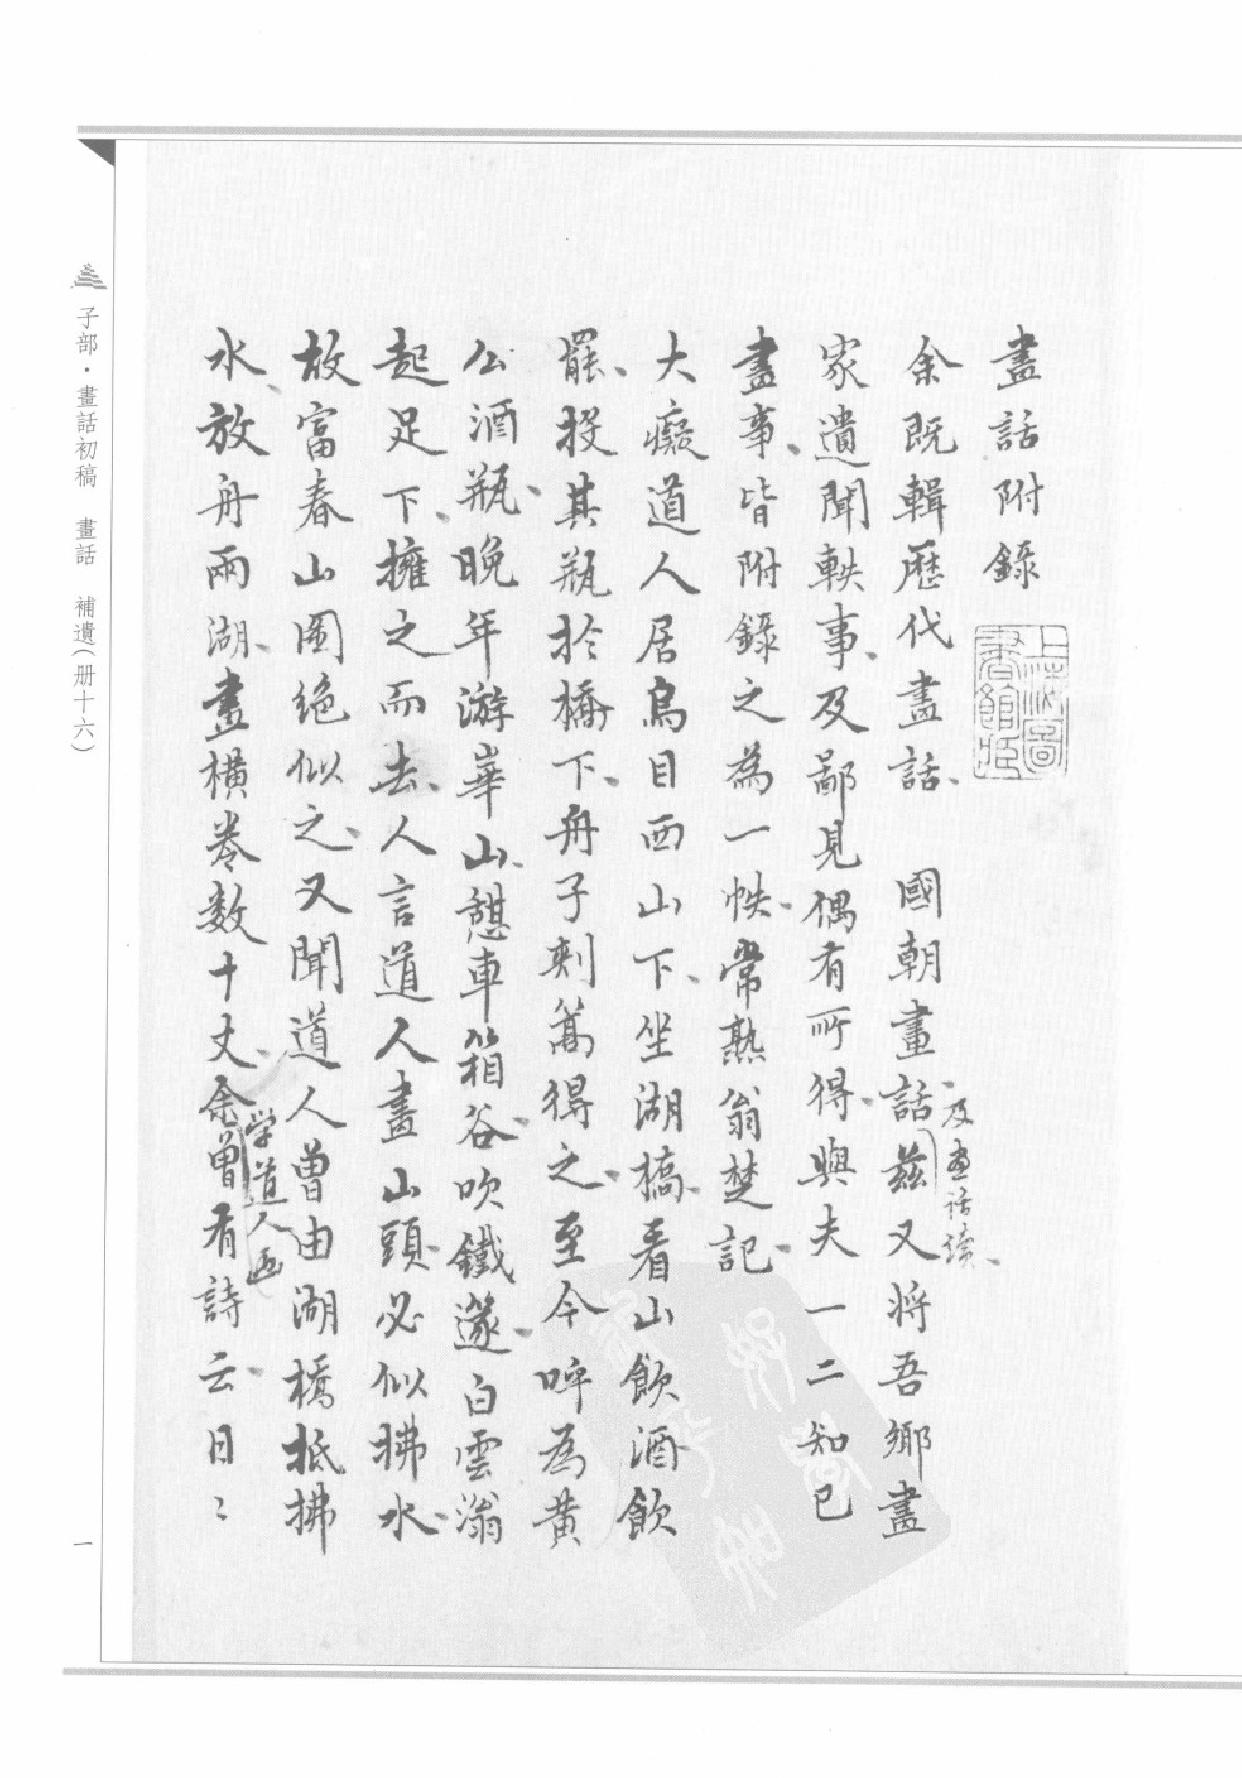 畫話附錄
余既輯歷代畫話、國朝畫話、及畫話續、茲又將吾鄉畫
家遺聞軼事、及鄙見偶有所得、與夫一二知己
畫事、皆附錄之為一帙、常熟翁楚記、
大癡道人居烏目西山下、坐湖橋、看山飲酒飲
罷、投其瓶於橋下、舟子刺篙得之、至今呼為黃
公酒瓶、晚年游華山、憩車箱谷、吹鐵邃、白雲滃
起足下、擁之而去、人言道人畫山頭、必似拂水、
故富春山圖絕似之、又聞道人曾由湖橋抵拂
水、放舟兩湖、畫橫卷數十丈、余曾学道人画有詩云、日〻
上海圖書館藏
子部·畫話初稿 畫話 補遺(册十六)
一